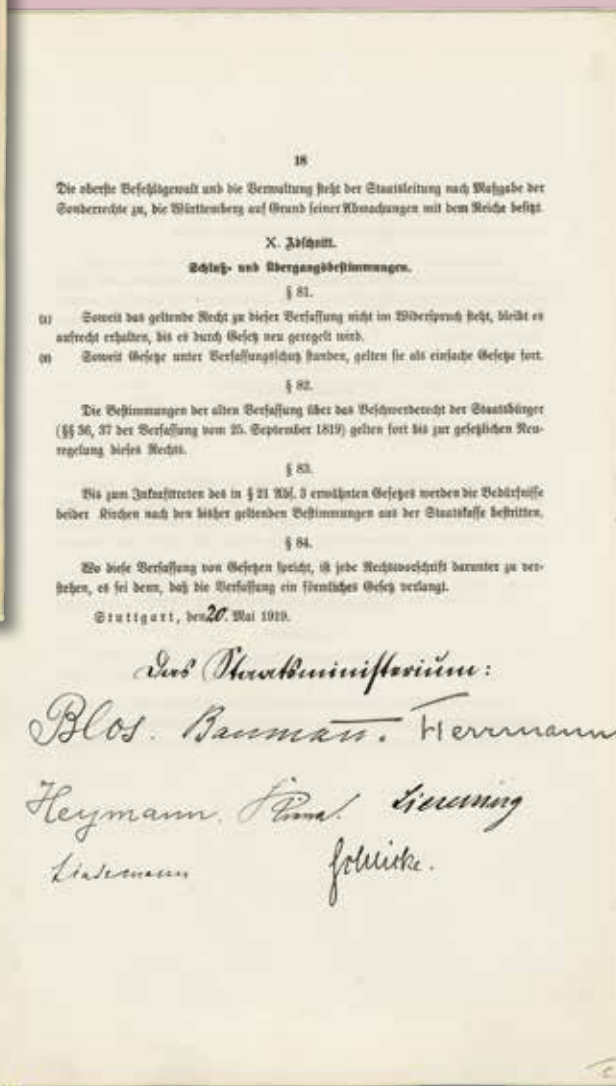 18
Die oberste Befehlsgewalt und die Verwaltung steht der Staatsleitung nach Maßgabe der
Sonderrechte zu, die Württemberg auf Grund seiner Abmachungen mit dem Reiche besitzt.
X. Abschnitt.
Schluß- und Übergangsbestimmungen.
§ 81.
(1) Soweit das geltende Recht zu dieser Verfassung nicht im Widerspruch steht, bleibt es
aufrecht erhalten, bis es durch Gesetz neu geregelt wird.
(2) Soweit Gesetze unter Verfassungsschutz standen, gelten sie als einfache Gesetze fort.
§ 82.
Die Bestimmungen der alten Verfassung über das Beschwerderecht der Staatsbürger
(§§ 36, 37 der Verfassung vom 25. September 1819) gelten fort bis zur gesetzlichen Neu-
regelung dieses Rechts.
§ 83.
Bis zum Inkrafttreten des in § 21 Abs. 3 erwähnten Gesetzes werden die Bedürfnisse
beider Kirchen nach den bisher geltenden Bestimmungen aus der Staatskasse bestritten.
§ 84.
Wo diese Verfassung von Gesetzen spricht, ist jede Rechtsvorschrift darunter zu ver-
stehen, es sei denn, daß die Verfassung ein förmliches Gesetz verlangt.
Stuttgart, den 20. Mai 1919.
Das Staatsministerium:
Blos. Baumann. Herrmann
Heymann. Liesching
Lindemann Schlicke.